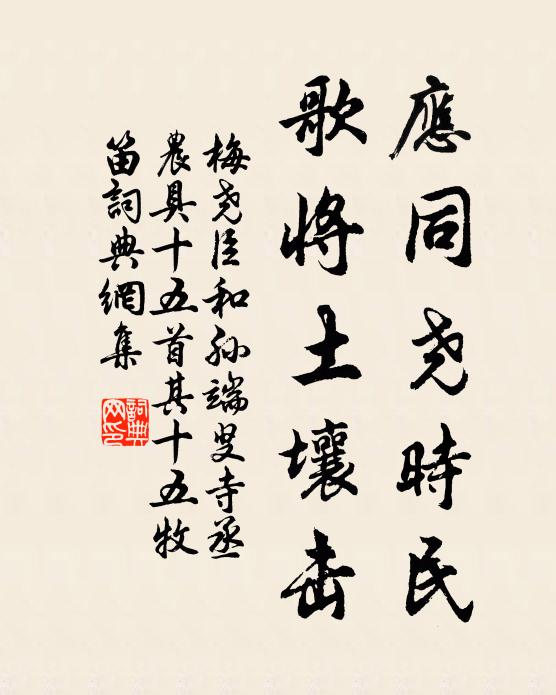 應同尧時民
歌將土壤击
梅尧臣和孙端叟寺丞
農具十五首其十五牧
笛詞典網集
詞典
网印